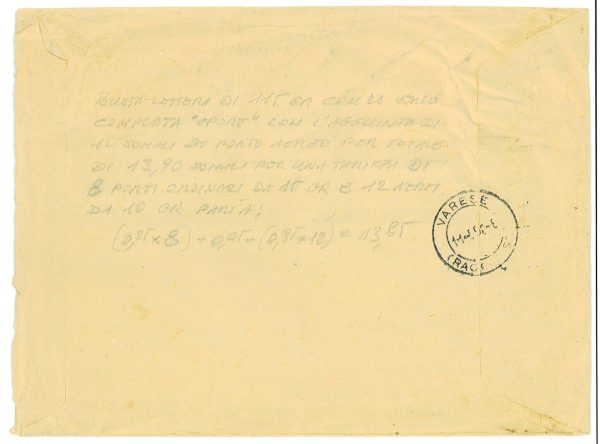 BUSTA-LETTERA DI 115 GR CON LA SERIE
COMPLETA "SPORT" CON L'AGGIUNTA DI
10 SOMALI DI POSTA AEREA PER TOTALE
DI 13,90 SOMALI PER UNA TARIFFA DI
8 PORTI ORDINARI DA 15 GR E 12 AEREI
DA 10 GR PARI A:
(0,25 x 8) + 0,45 + (0,95 x 12) = 13,85
VARESE
(RACC